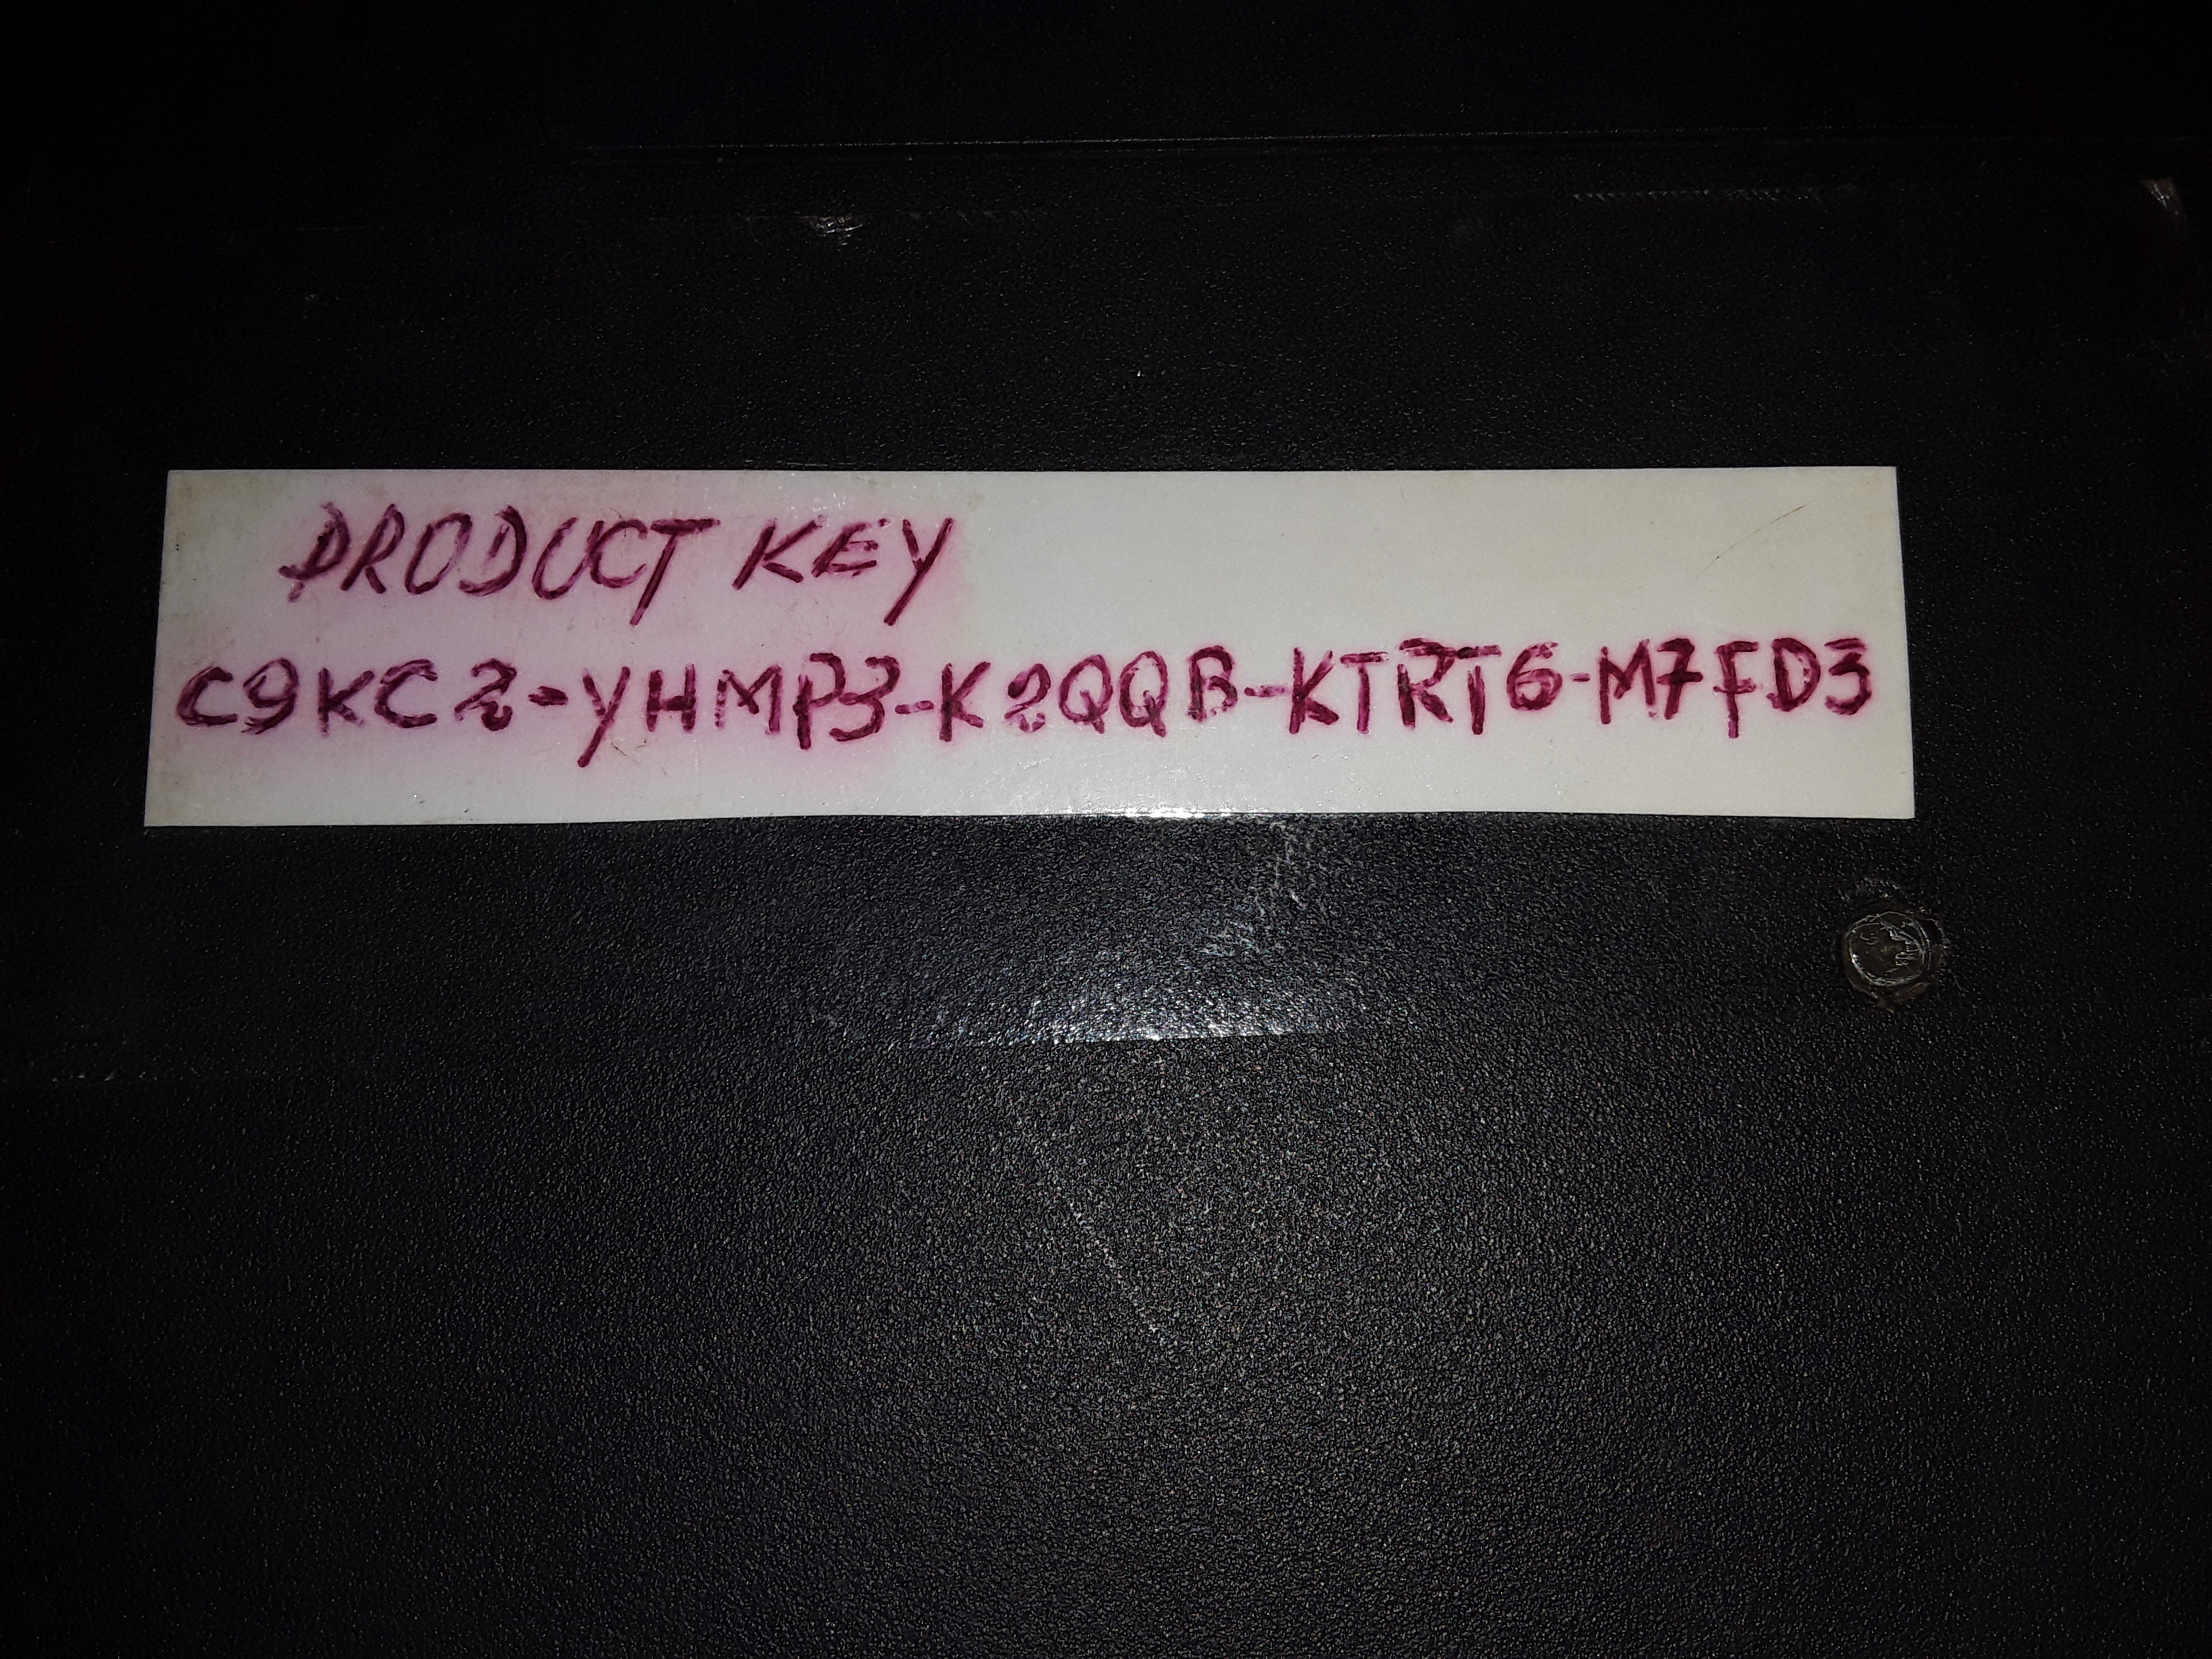 PRODUCT KEY
C9KC2-YHMP3-K2QQB-KTRT6-M7FD3